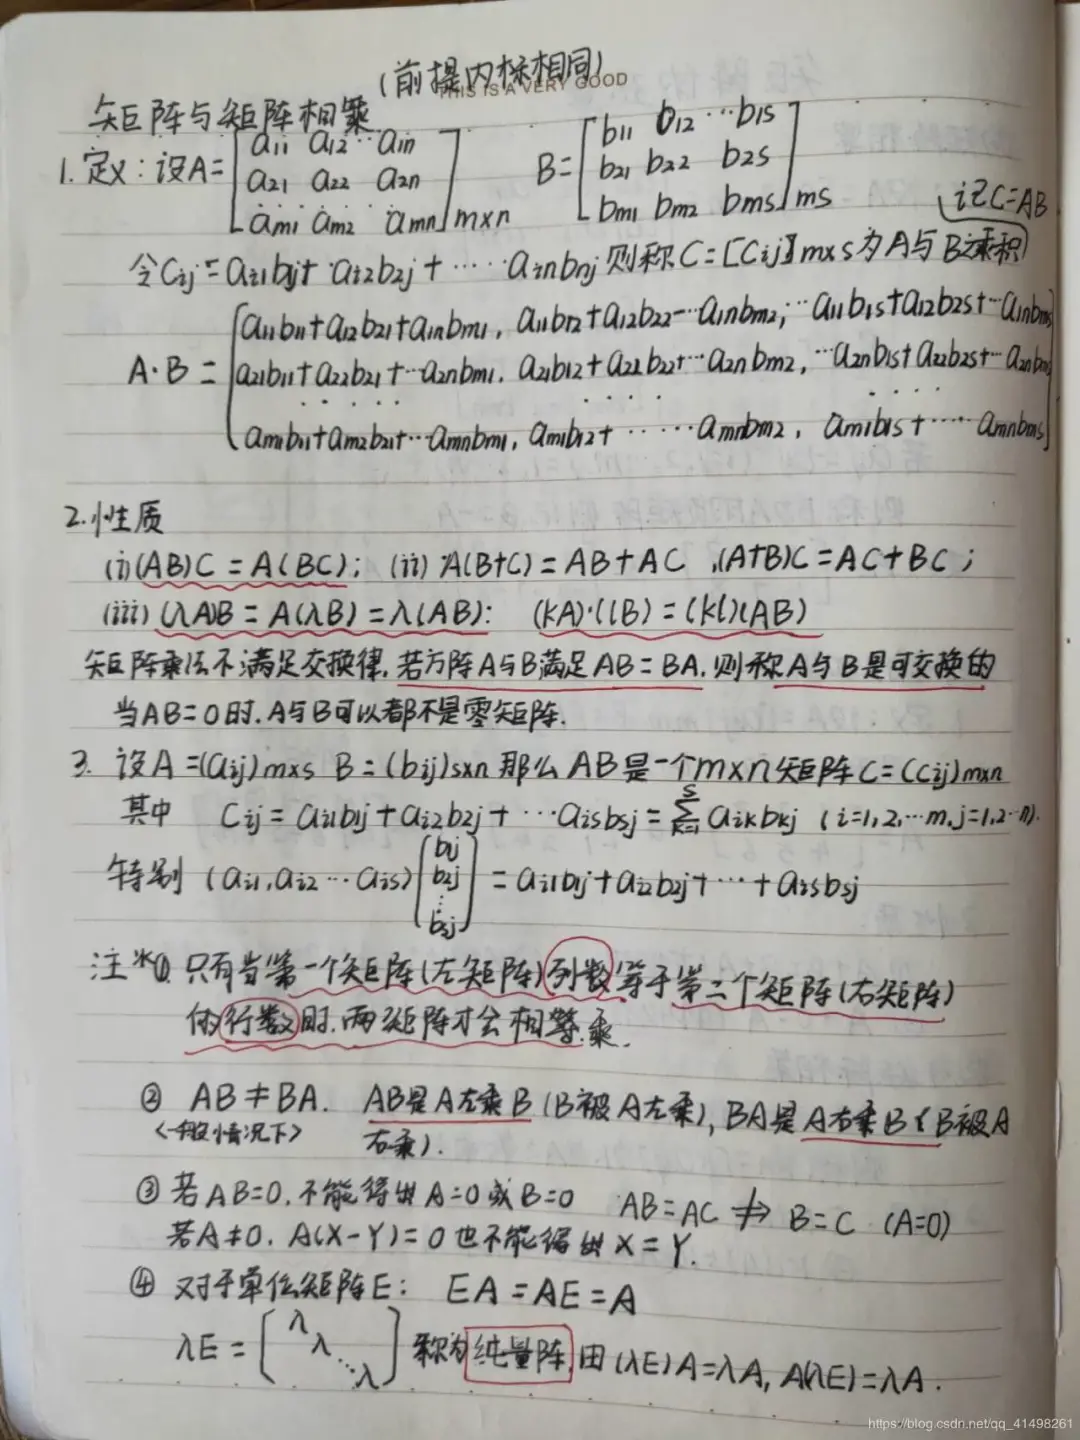 (前提内标相同)
THIS IS A VERY GOOD
矩阵与矩阵相乘
1. 定义: 设A= [a11 a12 … a1n; a21 a22 a2n; am1 am2 amn] m×n B= [b11 b12 … b1s; b21 b22 b2s; bm1 bm2 bms] ms
记C=AB
令Cij = ai1b1j + ai2b2j + …… ainbnj 则称C=[Cij]m×s为A与B乘积
A·B = [a11b11+a12b21+a1nbm1, a11b12+a12b22…a1nbm2, … a11b1s+a12b2s+…a1nbms
a21b11+a22b21+…a2nbm1. a21b12+a22b22+…a2nbm2, …a2nb1s+a22b2s+…a2nbms
am1b11+am2b21+…amnbm1, am1b12+……amnbm2, am1b1s+……amnbms]
2.性质
(i)(AB)C = A(BC); (ii) A(B+C)=AB+AC ,(A+B)C=AC+BC;
(iii)(λA)B = A(λB)=λ(AB): (kA)·(lB)=(kl)(AB)
矩阵乘法不满足交换律, 若方阵A与B满足AB=BA, 则称A与B是可交换的
当AB=0时, A与B可以都不是零矩阵.
3. 设A=(aij)m×s B=(bij)s×n 那么AB是一个m×n矩阵C=(Cij)m×n
其中 Cij = ai1b1j+ai2b2j+…aisbsj = ∑(k=1→s) aikbkj (i=1,2,…m,j=1,2…n).
特别 (ai1,ai2…ais)[b1j b2j ⋮ bsj] = ai1b1j+ai2b2j+…+aisbsj
注*① 只有当第一个矩阵(左矩阵)列数等于第二个矩阵(右矩阵)
的行数时, 两矩阵才会相乘.
② AB≠BA. AB是A左乘B(B被A左乘), BA是A右乘B(B被A
<一般情况下> 右乘).
③ 若AB=0, 不能得出A=0或B=0 AB=AC ⇏ B=C (A=0)
若A≠0, A(X-Y)=0也不能得出X=Y.
④ 对于单位矩阵E: EA=AE=A
λE = [λ λ ⋱ λ] 称为纯量阵, 由(λE)A=λA, A(λE)=λA.
https://blog.csdn.net/qq_41498261